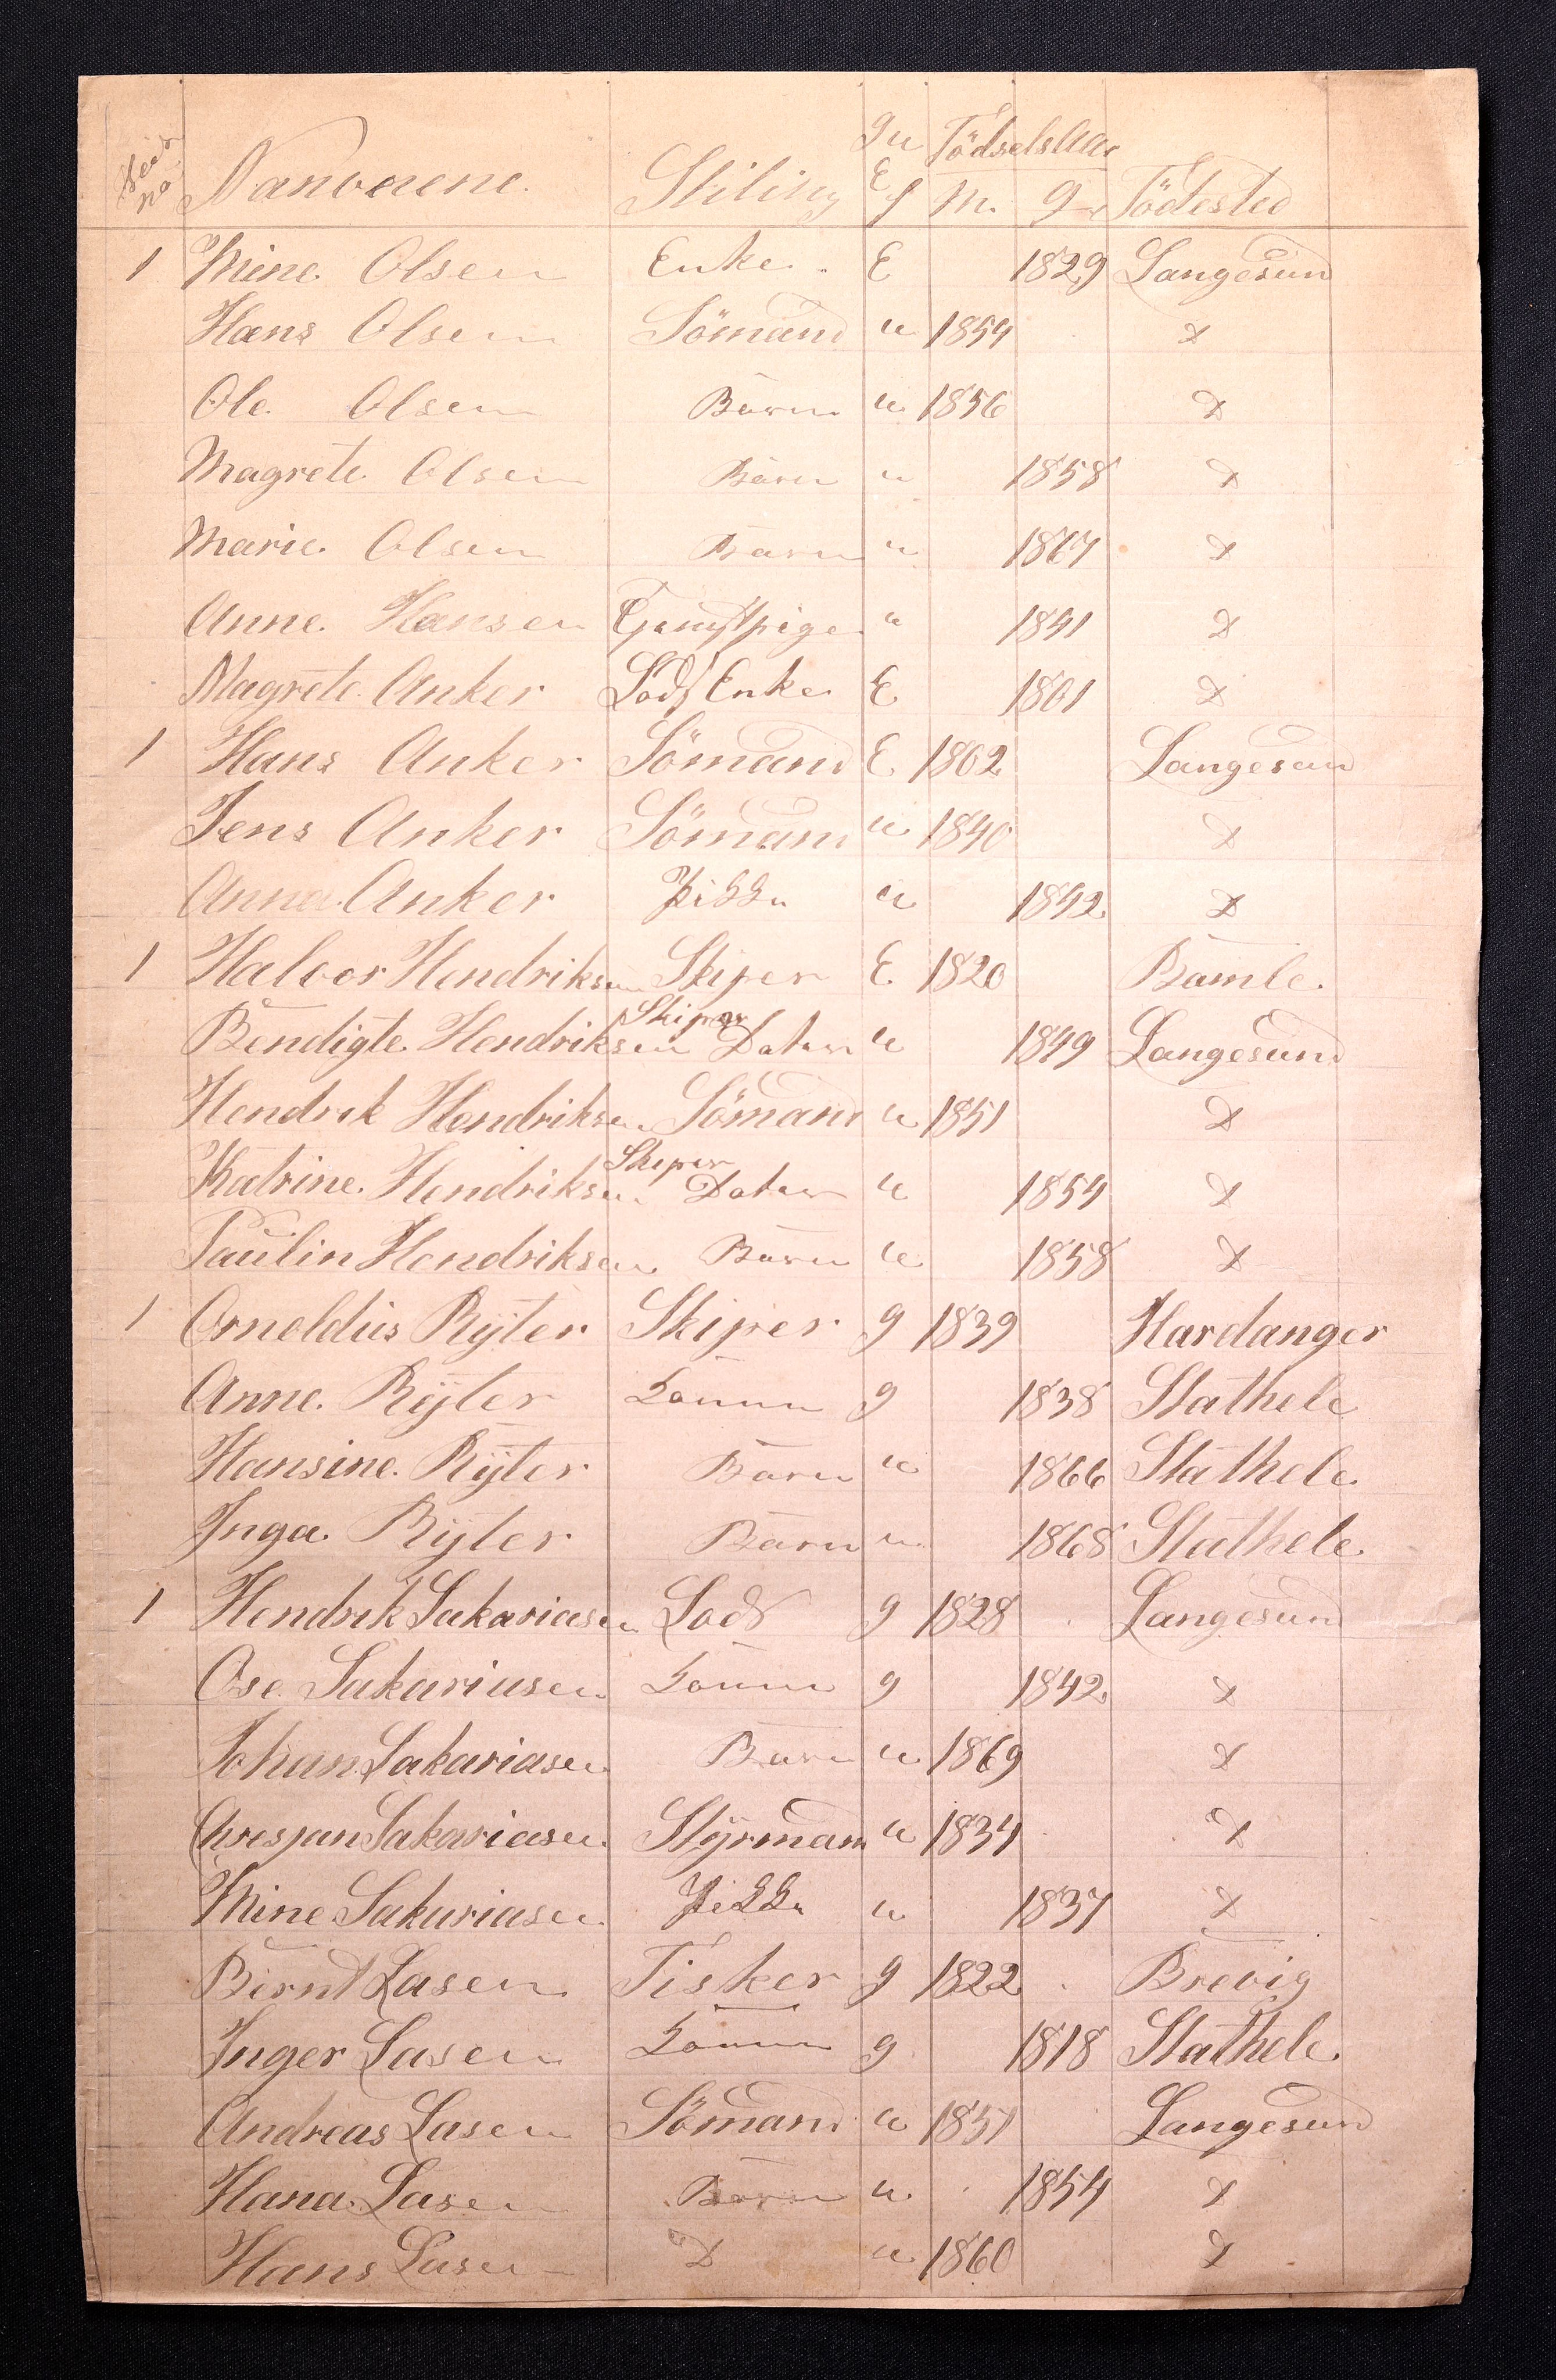 No Navnene Stiling g u E f Födselsaar M. g Födested
1 Trine Olsen Enke E 1829 Langesund
Hans Olsen Sömand u 1854 D
Ole Olsen Barn u 1856 D
Magrete Olsen Barn u 1858 D
Marie Olsen Barn u 1867 D
Anne Hansen u 1841 D
Magrete Anker Lods Enke E 1801 D
1 Hans Anker Sömand E 1802 Langesund
Jens Anker Sömand u 1840 D
Anne Anker u 1842 D
1 Halvor Hendriksen Skiper E 1820 Bamle
Bendigte Hendriksen Skiper Dater u 1849 Langesund
Hendrik Hendriksen Sömand u 1851 D
Katrine Hendriksen Skiper Dater u 1854 D
Paulin Hendriksen Barn u 1858 D
1 Arnoldus Rÿter Skiper g 1839 Hardanger
Anne Rÿter Konne g 1838 Stathele
Hansine Rÿter Barn u 1866 Stathele
Inga Rÿter Barn u 1868 Stathele
1 Hendrik Sakariasen Lods g 1828 Langesund
Ose Sakariasen Konne g 1842 D
Johan Sakariasen Barn u 1869 D
Chresjan Sakariasen Stÿrmand u 1834 D
Trine Sakariasen u 1837 D
Bernt Lasen Fisker g 1822 Brevig
Inger Lasen Konne g 1818 Stathele
Andreas Lasen Sömand u 1851 Langesund
Hana Lasen Barn u 1854 D
Hans Lasen D u 1860 D